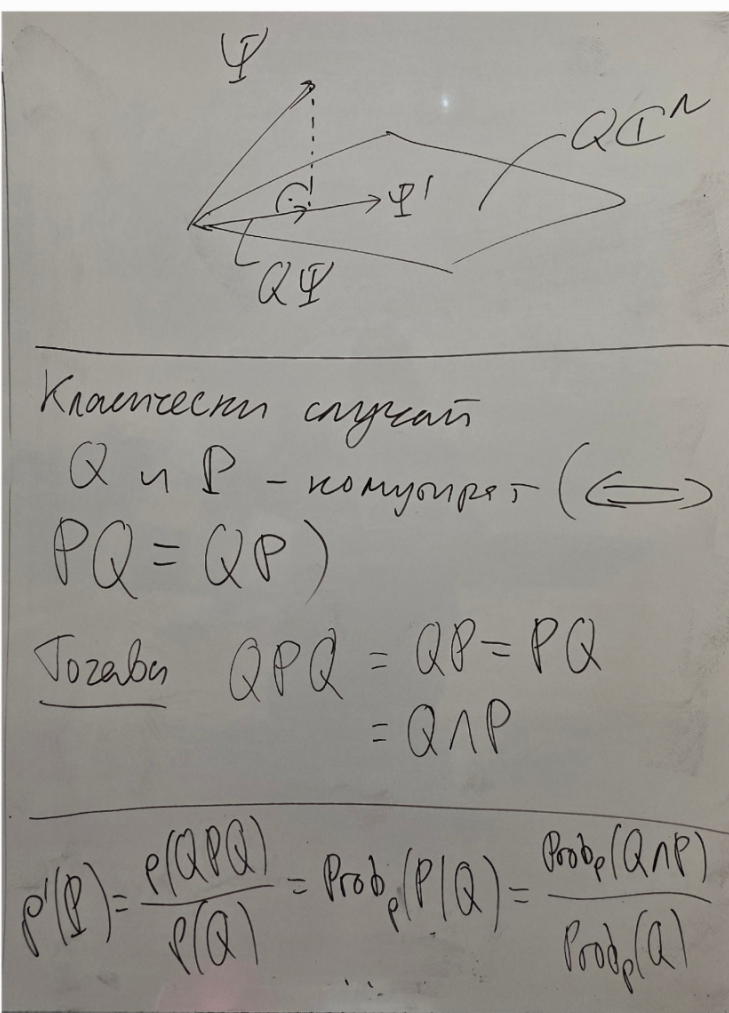 Ψ
Qℂᴺ
Ψ'
QΨ
Класически случай
Q и P - комутират (⟺
PQ = QP)
Тогава QPQ = QP = PQ
= Q∧P
ρ'(P) = ρ(QPQ) / ρ(Q) = Prob_ρ(P|Q) = Prob_ρ(Q∧P) / Prob_ρ(Q)